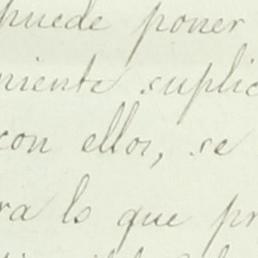 puede poner
niente suplic
con ellos, se
ra lo que pr